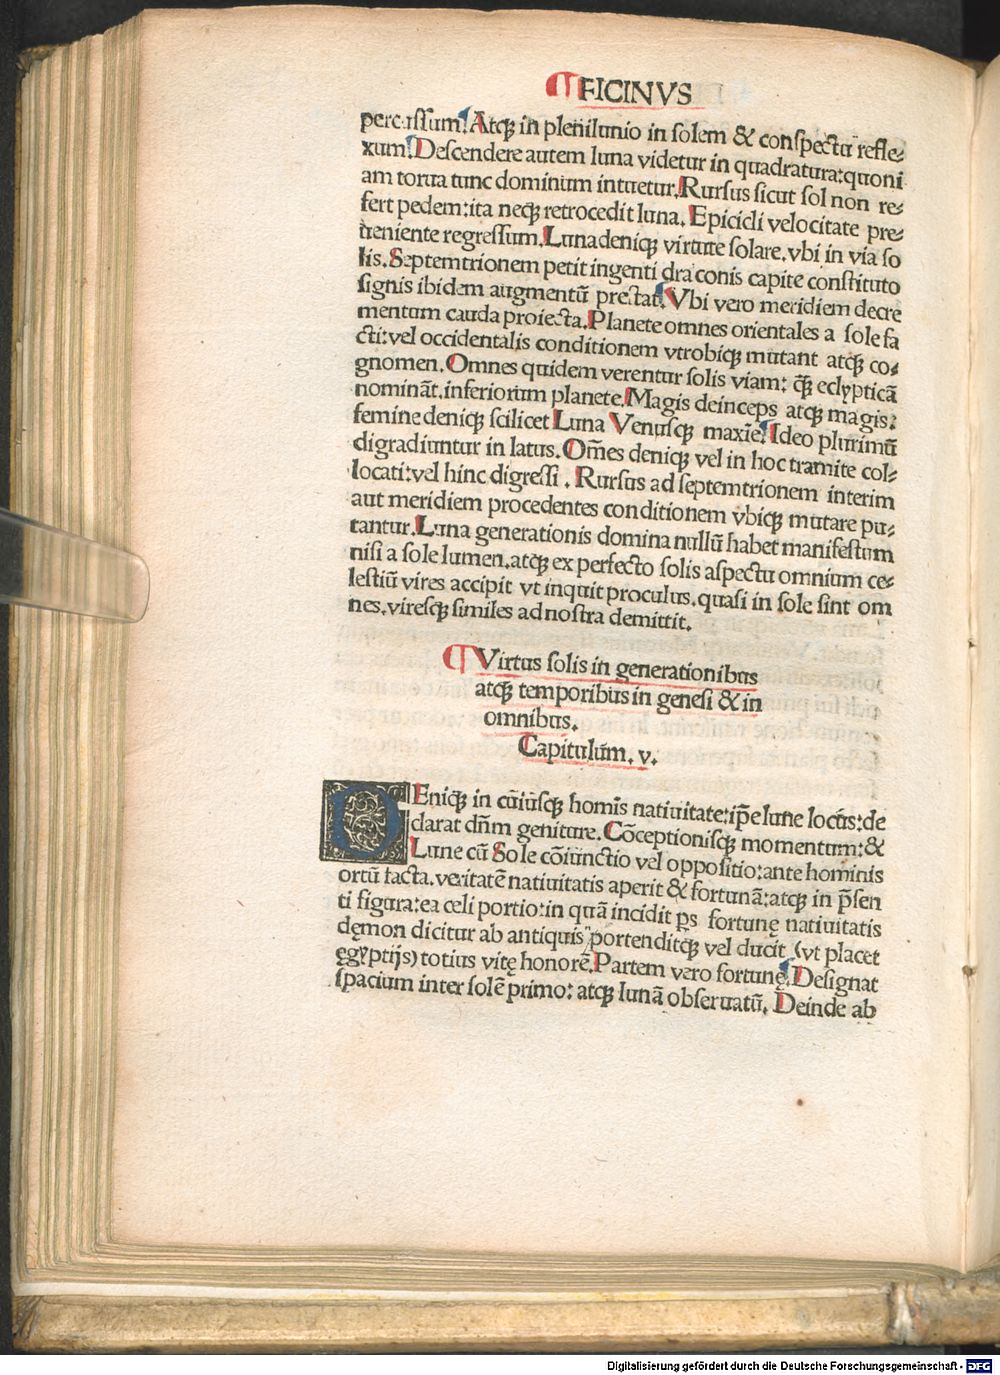 FICINVS
percussum. Atq̃ in plenilunio in solem & conspectu refle⸗
xum. Descendere autem luna videtur in quadratura: quoni
am torua tunc dominum intuetur. Rursus sicut sol non re⸗
fert pedem: ita neq̃ retrocedit luna. Epicicli velocitate pre⸗
ueniente regressum. Luna deniq̃ virtute solare. vbi in via so
lis. Septemtrionem petit ingenti draconis capite constituto
signis ibidem augmentū prestat. Vbi vero meridiem decre
mentum cauda proiecta. Planete omnes orientales a sole fa
cti: vel occidentalis conditionem vtrobiq̃ mutant atq̃ co⸗
gnomen. Omnes quidem verentur solis viam: q̃ eclypticā
nominãt. inferiorum planete. Magis deinceps atq̃ magis:
femine deniq̃ scilicet Luna Venusq̃ maxīe. Ideo plurimū
digradiuntur in latus. Om̄es deniq̃ vel in hoc tramite col⸗
locati: vel hinc digressi. Rursus ad septemtrionem interim
aut meridiem procedentes conditionem vbiq̃ mutare pu⸗
tantur. Luna generationis domina nullū habet manifestum
nisi a sole lumen. atq̃ ex perfecto solis aspectu omnium ce⸗
lestiū vires accipit vt inquit proculus. quasi in sole sint om
nes. viresq̃ similes ad nostra demittit.
Virtus solis in generationibus
atq̃ temporibus in genesi & in
omnibus.
Capitulum. v.
DEniq̃ in cūiusq̃ homis natiuitate: ip̄e lune locus: de
clarat dn̄m geniture. Cōceptionisq̃ momentum: &
Lune cū Sole cōiunctio vel oppositio: ante hominis
ortū facta. veritatē natiuitatis aperit & fortunā: atq̃ in p̄sen
ti figura: ea celi portio: in quā incidit ps fortunę natiuitatis
dęmon dicitur ab antiquis portenditq̃ vel ducit (vt placet
ęgyptijs) totius vitę honorē. Partem vero fortunę. Designat
spacium inter solē primo: atq̃ lunā obseruatū. Deinde ab
Digitalisierung gefördert durch die Deutsche Forschungsgemeinschaft - DFG